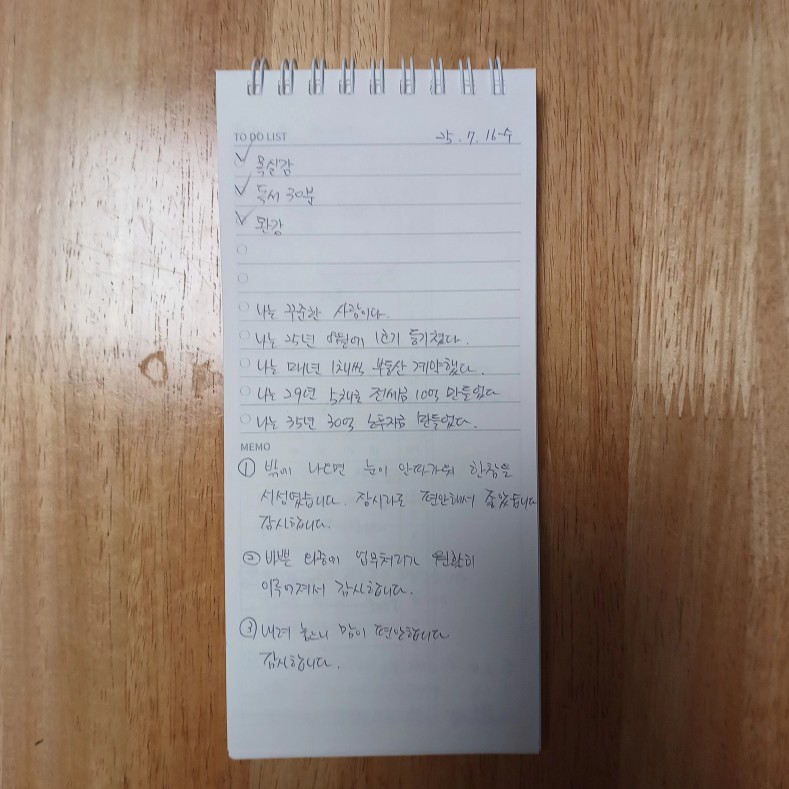 TO DO LIST 25. 7. 16 수
목실감
독서 30분
완강
나는 꾸준한 사람이다.
나는 25년 8월에 1호기 등기쳤다.
나는 매년 1채씩 부동산 계약했다.
나는 29년 5채로 전세금 10억 만들었다
나는 35년 30억 만들었다.
MEMO
① 밖에 나오면 눈이 안따가워 한참을
서성였습니다. 잠시라도 편안해서 좋았습니다
감사합니다.
② 바쁜 와중에 업무처리가 원활히
이루어져서 감사합니다.
③ 내려 놓으니 맘이 편안합니다
감사합니다.